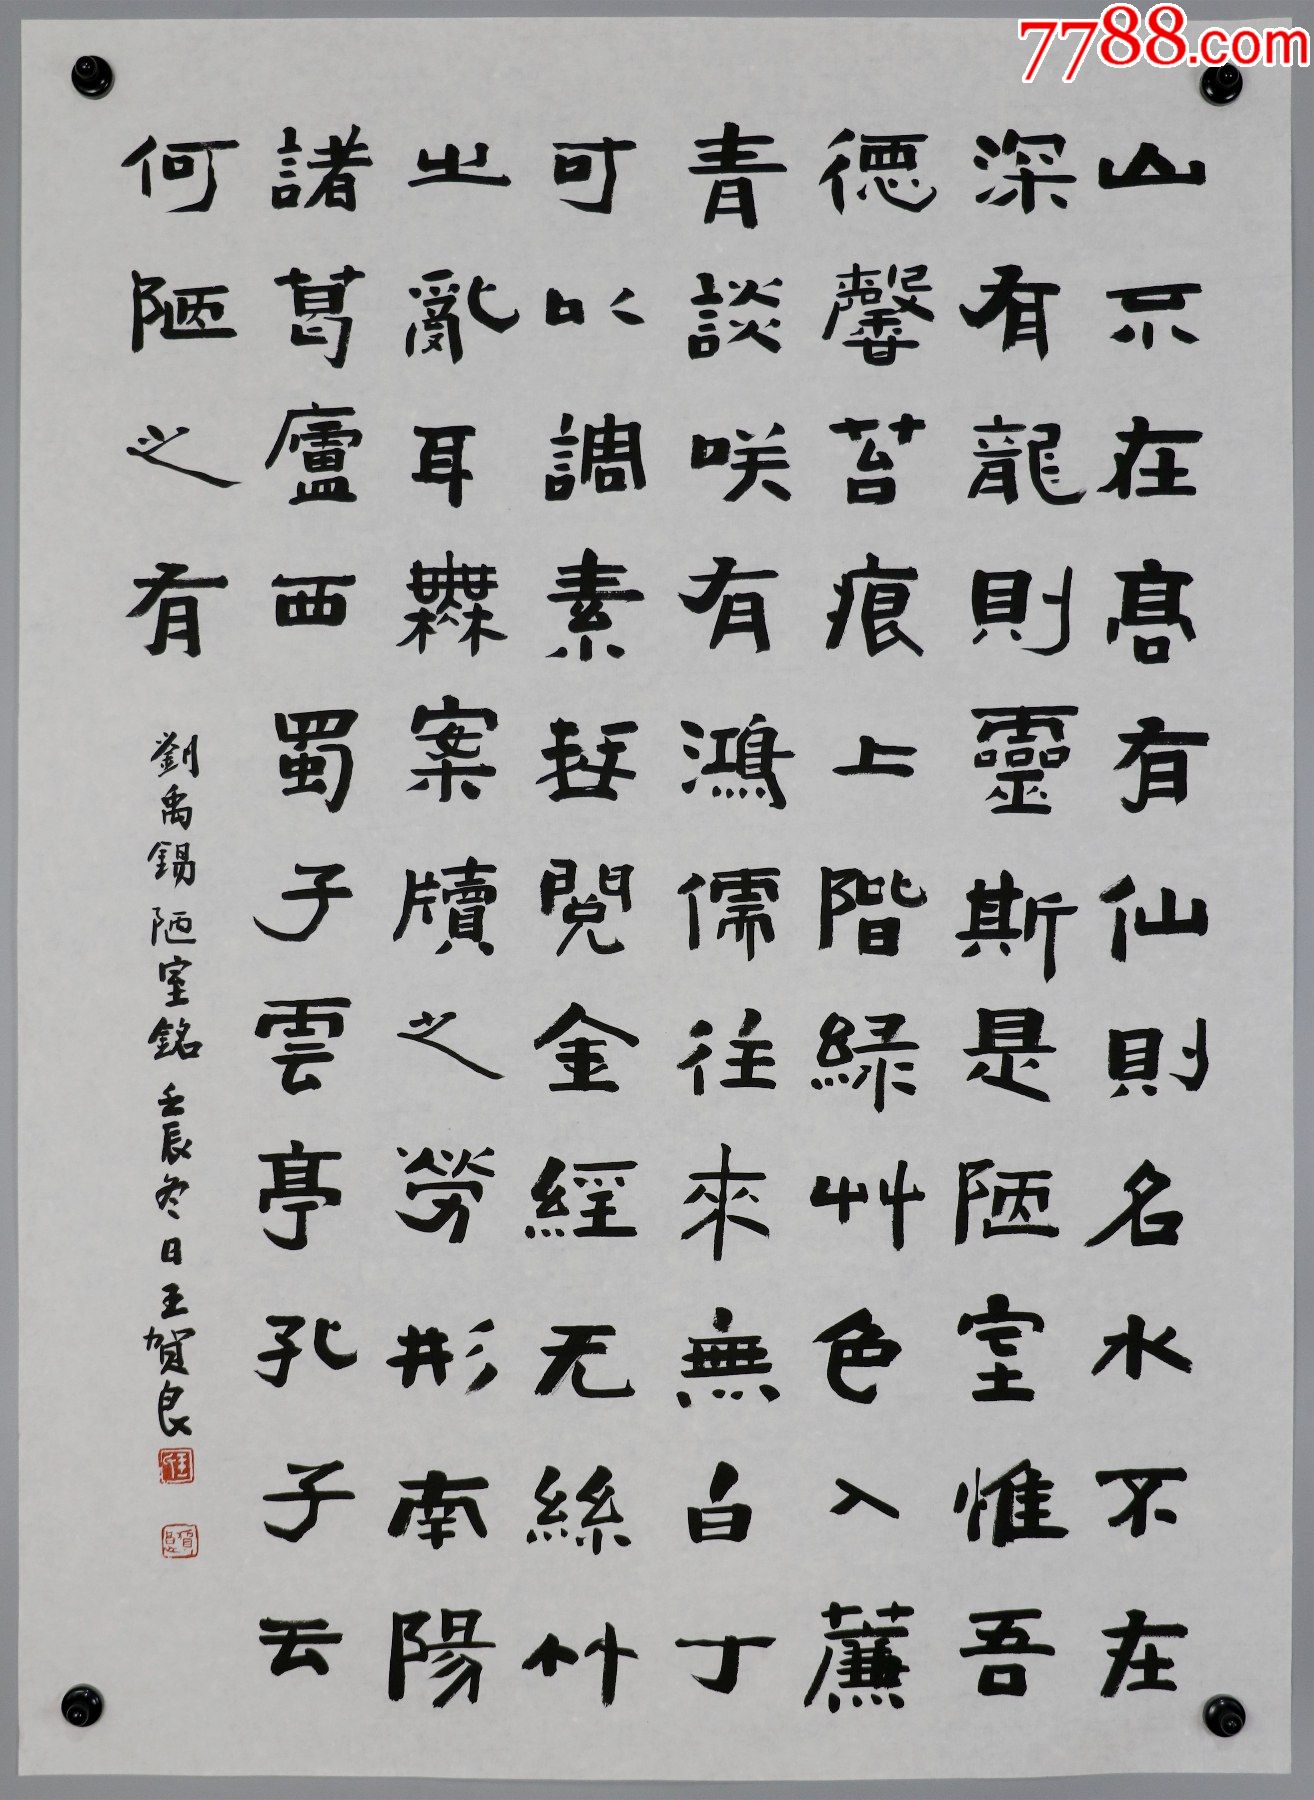 7788.com
山不在髙有仙則名水不在
深有龍則靈斯是陋室惟吾
德馨苔痕上階緑艸色入薕
青談咲有鴻儒往來無白丁
可以調素琴閱金經无絲竹
之亂耳橆案牘之勞形南陽
諸葛廬西蜀子雲亭孔子云
何陋之有
劉禹錫陋室銘壬辰冬日王賀良